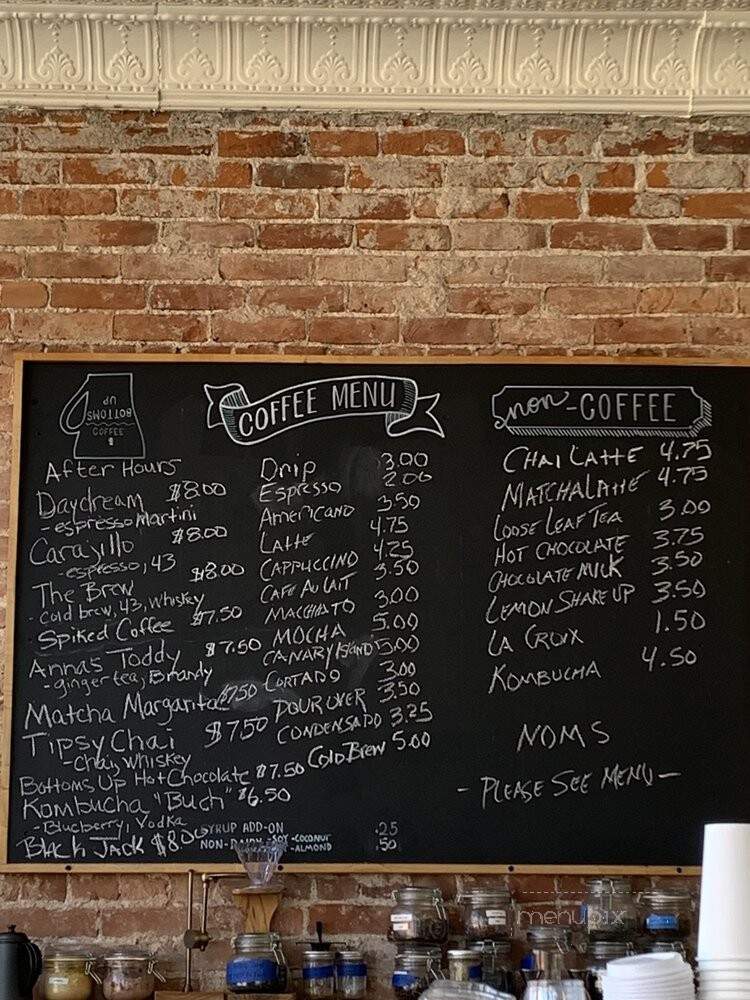 BOTTOMS
UP
COFFEE
After Hours
Daydream $8.00
- espresso Martini
Carajillo $8.00
- espresso, 43
The Brew $8.00
- cold brew, 43, whiskey
Spiked Coffee $7.50
Annas Toddy $7.50
- ginger tea, Brandy
Matcha Margarita $7.50
Tipsy Chai $7.50
- Chai, whiskey
Bottoms Up Hot Chocolate $7.50
Kombucha "Buch" $6.50
- Blueberry, Vodka
Black Jack $8.00
COFFEE MENU
Drip 3.00
Espresso 2.00
Americano 3.50
Latte 4.75
Cappuccino 4.25
Cafe Au Lait 3.50
Macchiato 3.00
Mocha 5.00
Canary Island 5.00
Cortado 3.00
Pour over 3.50
Condensado 3.25
Cold Brew 5.00
SYRUP ADD-ON .25
NON-DAIRY -SOY -COCONUT
-ALMOND .50
non-COFFEE
Chai Latte 4.75
Matcha Latte 4.75
Loose Leaf Tea 3.00
Hot Chocolate 3.75
Chocolate Milk 3.50
Lemon Shake up 3.50
La Croix 1.50
Kombucha 4.50
NOMS
- PLEASE SEE MENU -
menupix